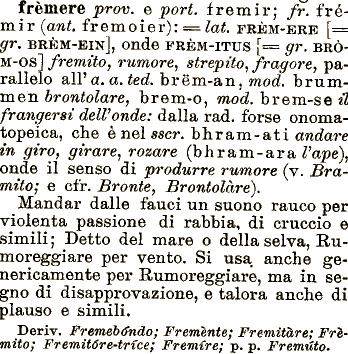 frèmere prov. e port. fremir; fr. fré-
mir (ant. fremoier): = lat. FRÈM-ERE [=
gr. BRÈM-EIN], onde FRÈM-ITUS [= gr. BRÒ-
M-OS] fremito, rumore, strepito, fragore, pa-
rallelo all'a. a. ted. brëm-an, mod. brum-
men brontolare, brem-o, mod. brem-se il
frangersi dell'onde: dalla rad. forse onoma-
topeica, che è nel sscr. bhram-ati andare
in giro, girare, rozare (bhram-ara l'ape),
onde il senso di produrre rumore (v. Bra-
mito; e cfr. Bronte, Brontolàre).
Mandar dalle fauci un suono rauco per
violenta passione di rabbia, di cruccio e
simili; Detto del mare o della selva, Ru-
moreggiare per vento. Si usa anche ge-
nericamente per Rumoreggiare, ma in se-
gno di disapprovazione, e talora anche di
plauso e simili.
Deriv. Fremebóndo; Fremènte; Fremitàre; Frè-
mito; Fremitóre-tríce; Fremíre; p. p. Fremúto.